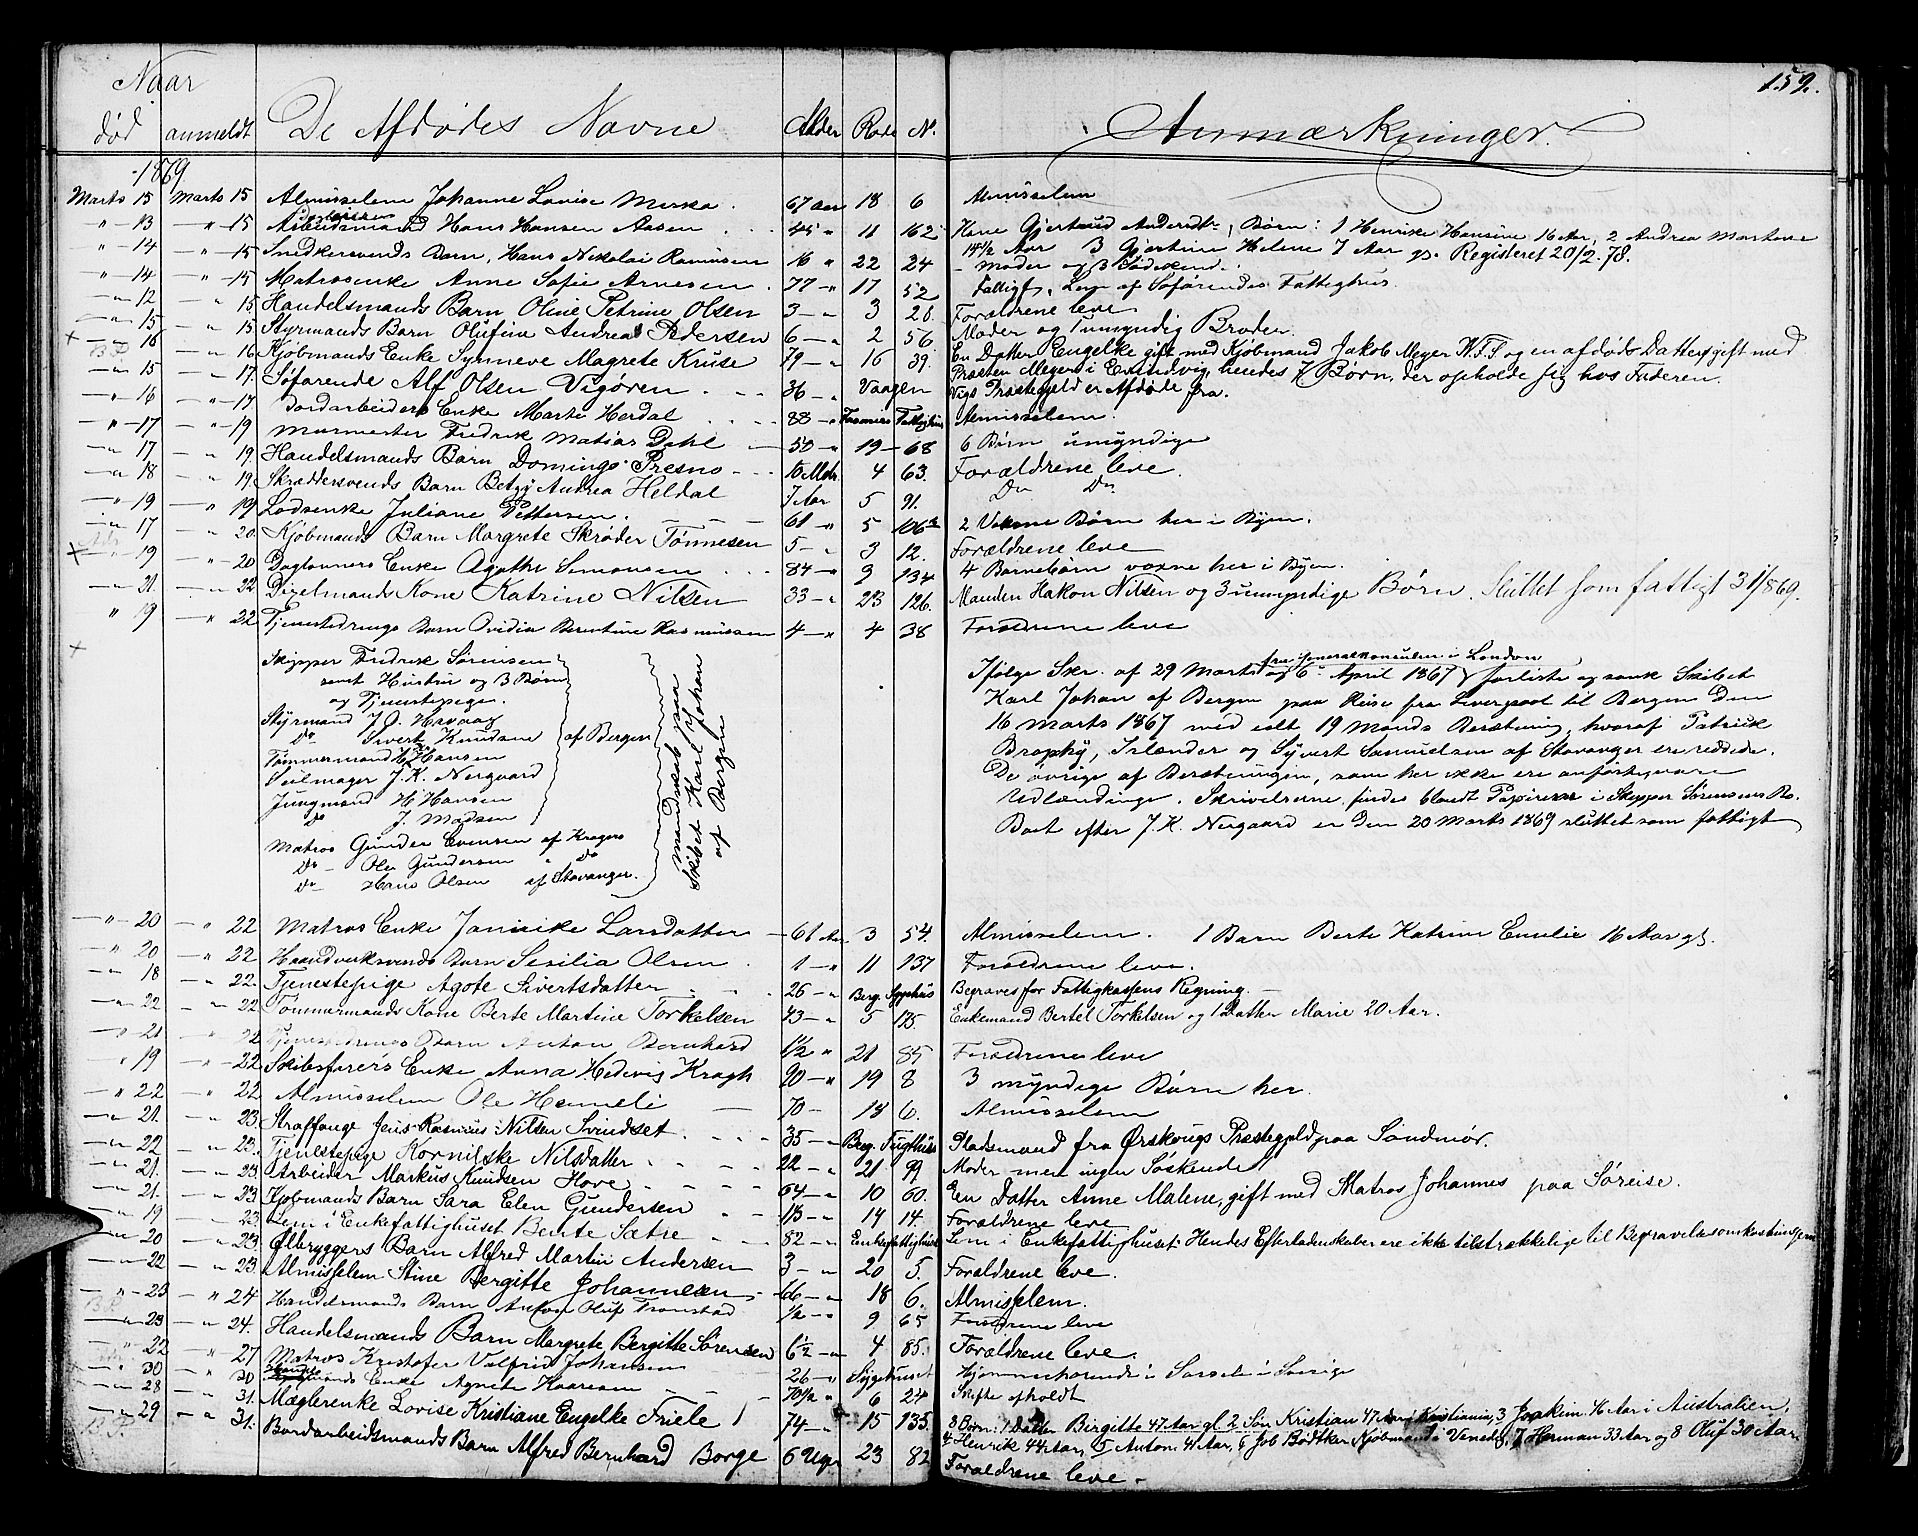 159.
Naar
død anmeldt De Afdødes Navne Alder Rode N. Anmærkninger.
1869.
Marts 15 Marts 15 Almisselem Johanne Lovise 67 Aar 18 6 Almisselem
" 13 " 15 Arbeidsmand Hans Hansen Aasen 45 " 11 162 Kone Gjertrud Andersdtr, Børn: 1 Henrike Hansine 16 Aar, 2 Andrea Martine
14½ Aar 3 Gjertine Helene 7 Aar gl. Registeret 20/2-78.
" 14 " 15 Snedkersvends Barn, Hans Nikolai Rasmussen " 22 24 Moder og 3 Sødskend.
" 14 " 15 Matrosenke Anne Sofie Arnesen 77 " 17 52 Fattigt, Lem af Søfarendes Fattighus.
" 12 " 15 Handelsmands Barn Oline Petrine Olsen 3 " 3 28. Forældrene leve
" 15 " 15 Styrmands Barn Olufine Andrea Pedersen 6 " 2 56 Moder og 1 umyndig Broder.
" 16 " 16 Kjøbmands Enke Synneve Magrete Kruse 79 " 16 39. En Datter Engelke gift med Kjøbmand Jakob Meyer W.F.F og en afdøds Datter gift med
Præsten Meyer i Evindvig, hendes 7 Børn, der opholde sig hos Faderen.
" 15 " 17. Søfarende Alf Olsen Vigøren 36 " Vaagen Vigs Præstegjeld er Afdøde fra.
" 16 " 17 Jordarbeiders Enke Marte Herdal 88 " Fattighus Almisselem.
" 17 " 19 Murmester Fredrik Matias Dahl 50 " 19 68 6 Børn umyndige
" 17 " 19. Handelsmands Barn Domingo Presno 10 Mdr. 4 63. Forældrene leve.
" 18 " 19. Skræddersvends Barn Betzy Andrea Heldal 7 Aar 5 91. Do Do
" 19 " 19 Lodsenke Juliane Pettersen. 61 " 5 106 2 Voksne Børn her i Byen.
" 17 " 20. Kjøbmands Barn Margrete Skrøder Tønnesen 5 " 3 12. Forældrene leve
" 19 " 20 Daglønners Enke Agathe Simonsen 84 " 2 134 4 Barnebørn voxne her i Byen.
" 21. " 22 Digelmands Kone Katrine Nilsen 33 " 23 126. Manden Hakon Nilsen og 3 umyndige Børn. Sluttet som fattigt 31/869.
" 19 " 22 Tjenestedrengs Barn Ovidia Berntine Rasmussen 4 " 4 38 Forældrene leve
Skipper Fredrik Sørensen
samt Hustru og 3 Børn
og Tjenestepige.
Styrmand J. O. Havaag
Do Sivert Knudsen
Tømmermand H. Hansen
Seilmager J. K. Nergaard
Jungmand H. Hansen
Do J. Madsen
af Bergen
Matros Gunder Evensen af Kragerø
Do Ole Gundersen " Do
Do Hans Olsen af Stavanger.
Mandskab paa
Skibet Karl Johan
af Bergen
Ifølge Skr. af 29 Marts og 6 April 1867 fra Generalkonsulen i London forliste og sank Skibet
Karl Johan af Bergen paa Reise fra Liverpool til Bergen den
16 Marts 1867 med ialt 19 Mands Besætning, hvoraf Patrick
Brophy, Irlænder og Syvert Samuelsen af Stavanger ere reddede.
De øvrige af Besætningen, som her ikke ere anførte, vare
Udlændinge. Skrivelserne findes blandt Papirerne i Skipper Sørensens Bo.
Boet efter J. K. Nergaard er den 20 Marts 1869 sluttet som fattigt
" 20 " 22 Matros Enke Jannike Larsdatter 61 Aar 3 54. Almisselem. 1 Barn Berte Katrine Emelie 16 Aar gl.
" 20 " 22 Haandverksvends Barn Sesilia Olsen 1 " 11 137 Forældrene leve.
" 18 " 22. Tjenestepige Agote Sivertsdatter 26 " Berg. Sygehus Begraves for Fattigkassens Regning.
" 22 " 22 Tømmermands Kone Berte Martine Torkelsen 43 " 5 175. Enkemand Bertel Torkelsen og 1 Datter Marie 20 Aar.
" 21 " 22 Tjenestedrengs Barn Anton Bernhard 1½ " 21 85 Forældrene leve
" 19 " 22 Skibsførers Enke Anna Hedevig Kragh 90 " 19 8 3 myndige Børn her.
" 22 " 22 Almisselem Ole Hemneli 70 18 6. Almisselem
" 21. " 23. Straffange Jens Rasmus Nilsen Svindset 35 " Berg. Tugthus Pladsmand fra Ørskougs Præstegjeld paa Søndmør.
" 22 " 23. Tjenestepige Kornilske Nilsdatter 22 " 21 99 Moder men ingen Søskende
" 21. " 23 Arbeider Markus Knudsen Hove 64 " 10 60. En Datter Anne Malene, gift med Matros Johannes paa Søreise.
" 21. " 23 Kjøbmands Barn Sara Elen Gundersen " 14 14. Forældrene leve
" 19 " 23 Lem i Enkefattighuset Bente Sætre 82 " Enkefattighuset Lem i Enkefattighuset. Hendes Efterladenskaber ere ikke tilstrækkelige til Begravelsesomkostningerne
" 20 " 23 Ølbryggers Barn Alfred Martin Andersen 3 " 20 5. Forældrene leve.
" 22 " 23. Almisselem Stine Bergitte Johannesen 66 " 18 6. Almisselem.
" 23 " 24 Handelsmands Barn Anton Oluf Tronstad ½ " 9 65 Forældrene leve
" 23 " 24. Handelsmands Barn Margrete Bergitte Sørensen 6½ " 4 85. Forældrene leve.
" 22 " 27 Matros Kristofer Valfrid Johansen 26 " Sygehuset Hjemmehørende i i Sverige
" 30 " 30 Enke Agnete Haaresen 70½ " 6 24 Skifte afholdt
" 28 " 31. Mæglerenke Lovise Kristiane Engelke Friele 74 " 15 135. 8 Børn: 1 Datter Birgitte 47 Aar gl. 2 Søn Kristian 47 Aar i Kristiania, 3 Joakim 46 Aar i Australien,
4 Henrik 44 Aar, 5 Anton 41 Aar, 6 Job Bødtker Kjøbmand i Venedig, 7 Herman 33 Aar og 8 Oluf 30 Aar.
" 29 " 31. Bordarbeidsmands Barn Alfred Bernhard Borge 6 Uger 23 82 Forældrene leve.